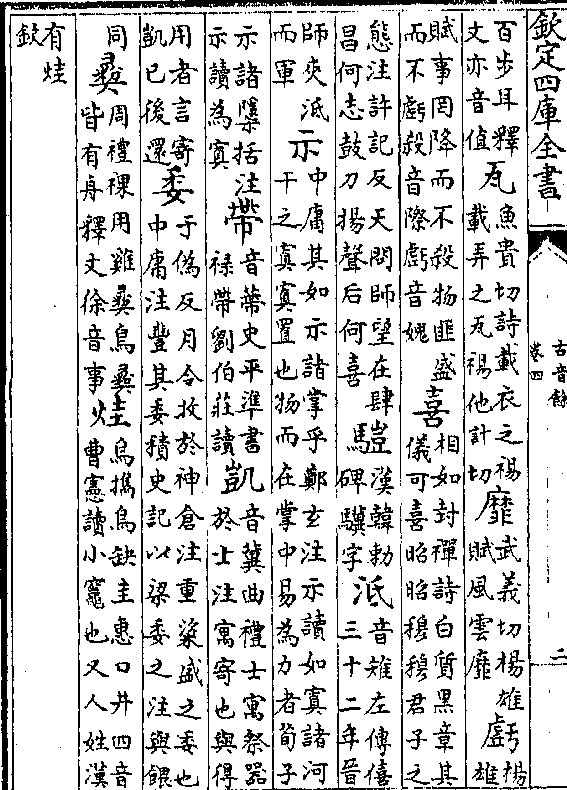 欽定四庫全書
古音餘
卷四
二
百步耳釋
文亦音值
瓦
魚貴切詩載衣之裼
載弄之瓦裼他計切
靡
武義切楊雄
賦風雲靡
虧
楊
雄
賦事罔隆而不殺物匪盛
而不虧殺音際虧音媿
喜
相如封禪詩白質黑章其
儀可喜昭昭穆穆君子之
態注許記反天問師望在肆
昌何志鼓刀揚聲后何喜
䮗
漢韓勅
碑驥字
泜
音雉左傳僖
三十二年晉
師夾泜
而軍
示
中庸其如示諸掌乎鄭玄注示讀如寘諸河
干之寘寘置也物而在掌中易為力者荀子
示諸檃括注
示讀為寘
帶
音蔕史平準書
祿帶劉伯莊讀
凱
音冀曲禮士寓祭器
於士注寓寄也與得
用者言寄
凱已後還
委
于偽反月令收於神倉注重粢盛之委也
中庸注豐其委積史記以梁委之注與餵
同
彞
周禮祼用雞彞鳥彞
皆有舟釋文徐音事
烓
烏攜烏缺圭惠口井四音
曹憲讀小竈也又人姓漢
有烓
欽